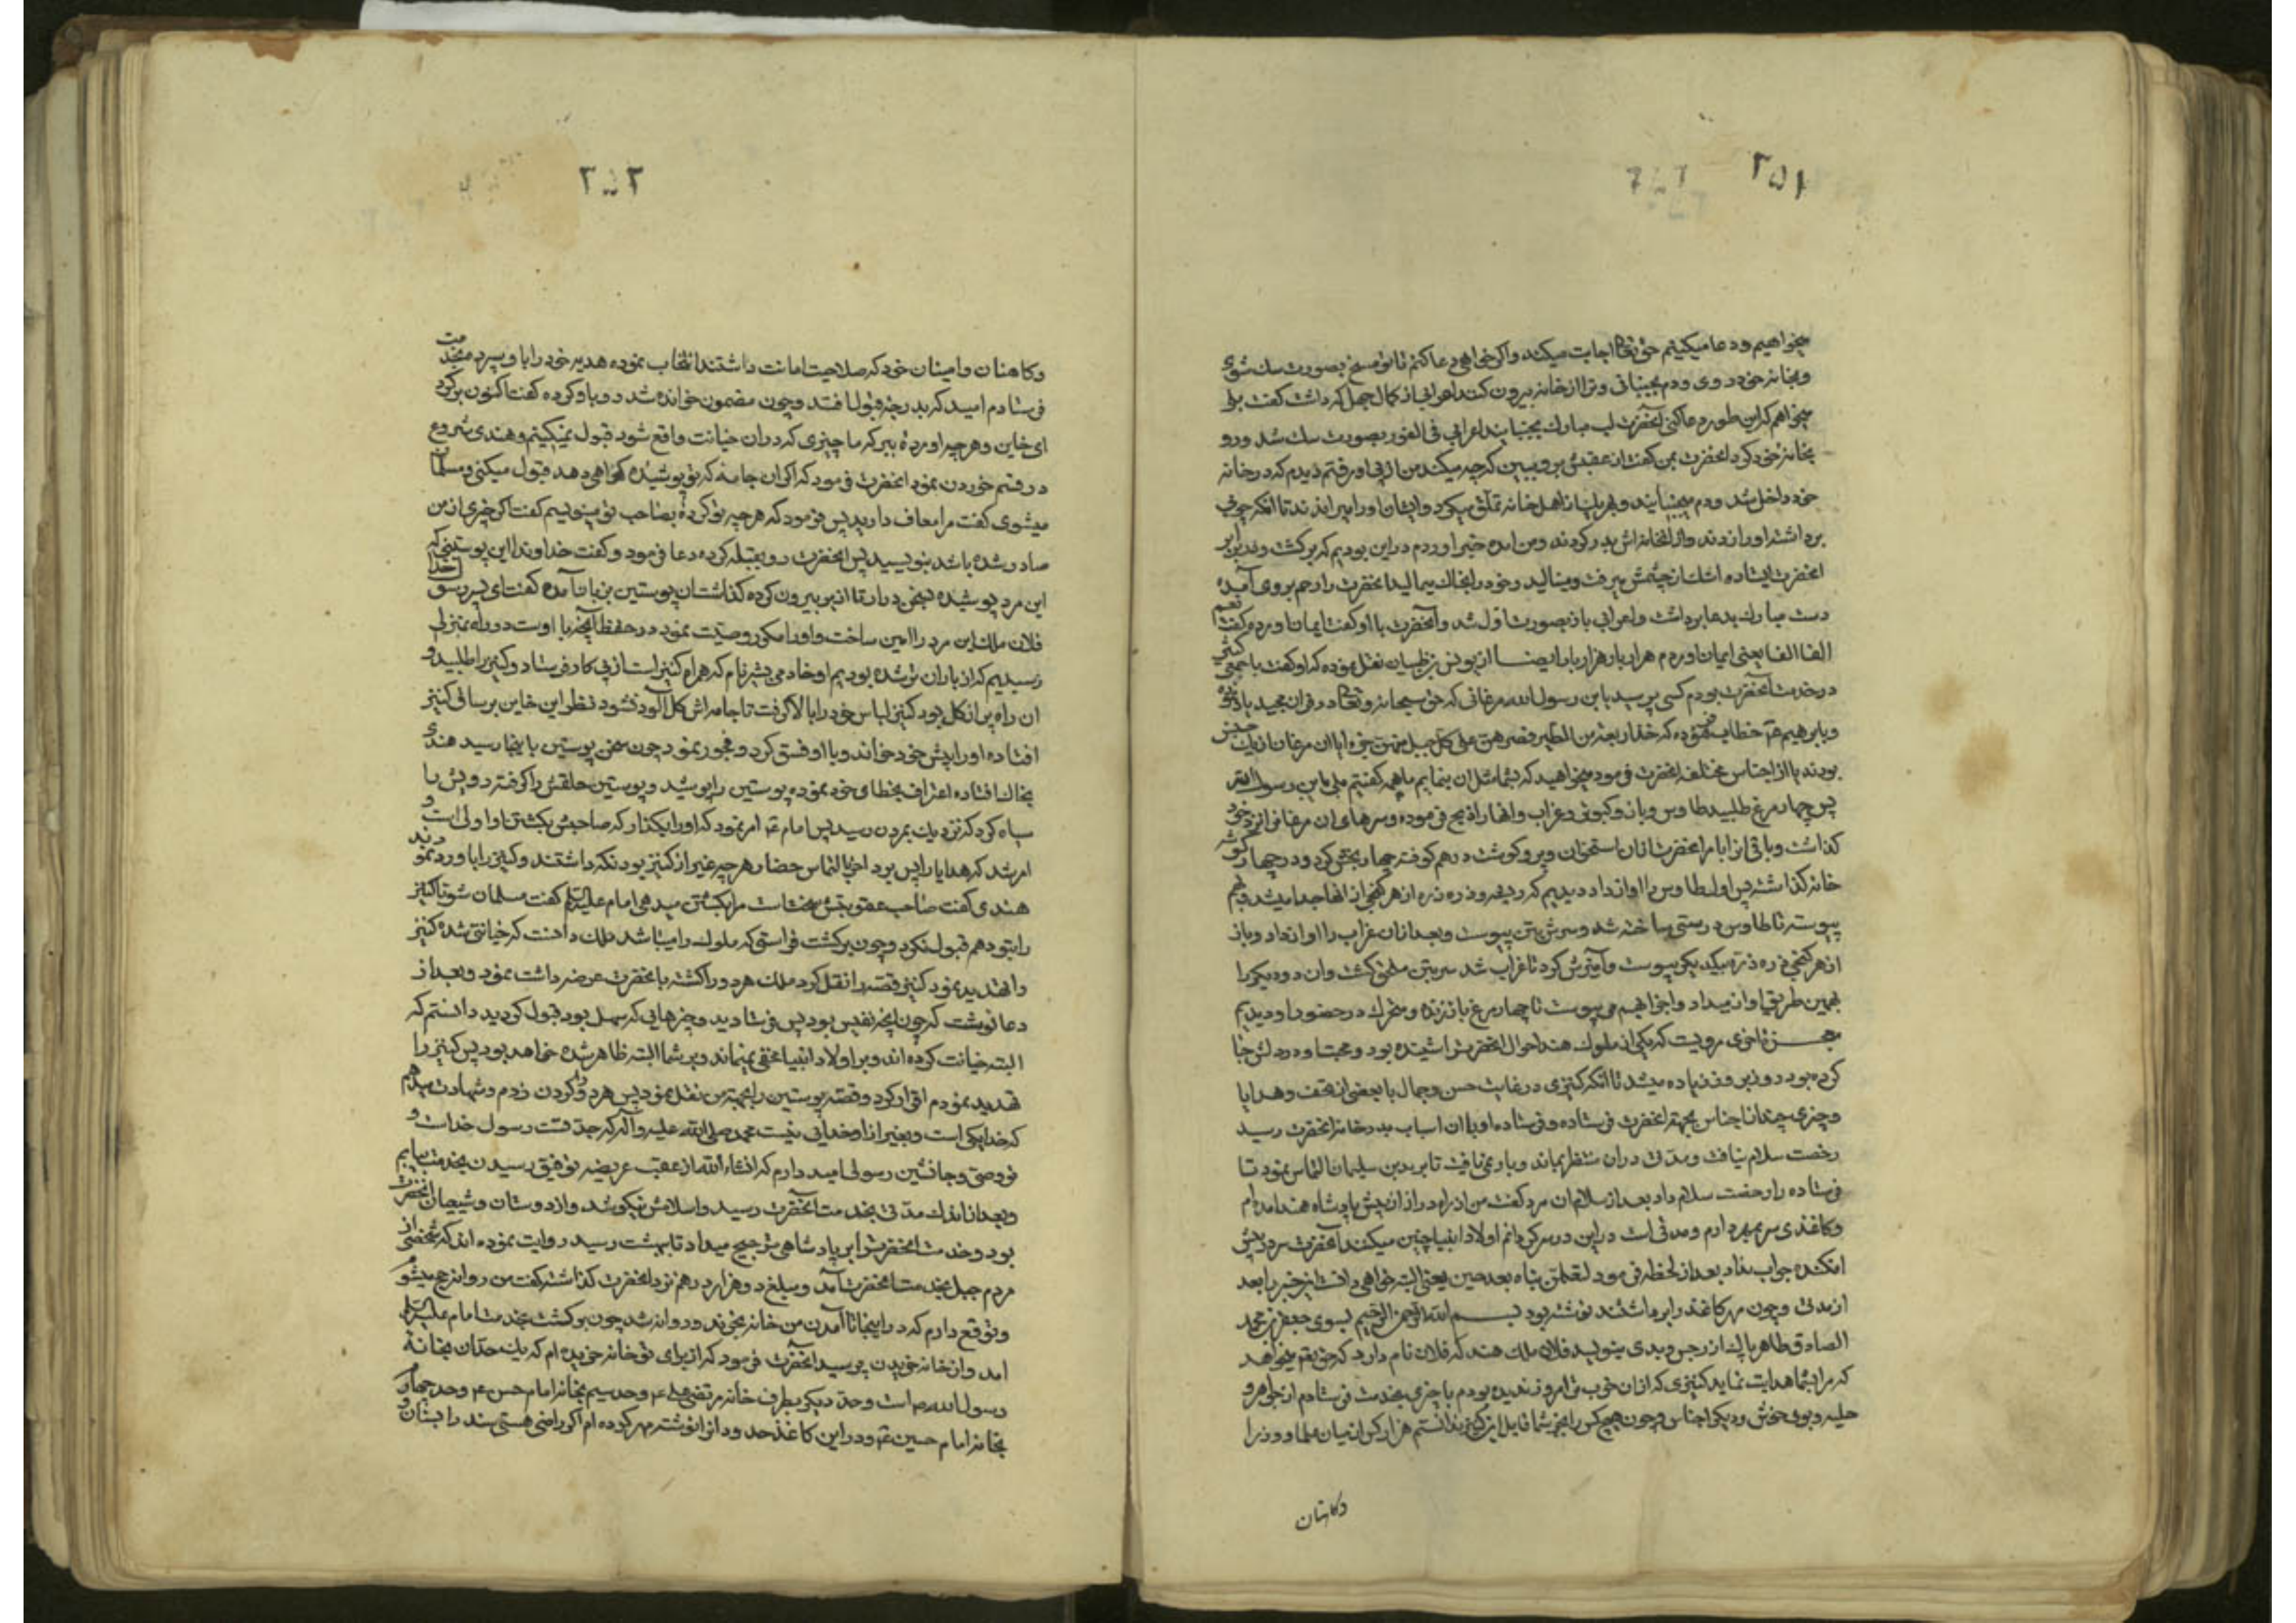 ۲۵۱
میخواهیم و دعا میکنیم حق تعا اجابت میکند و اکر خواهی دعا کنم تا تو مسخ بصورت سک شوی
و بخانه خود روی و دم بجنبانی و ترا از خانه بیرون کنند اعرابی از کمال جهل که داشت کفت بلی
میخواهم که این طور دعا کنی آنحضرت لب مبارک بجنبانید اعرابی فی الفور بصورت سک شد و رو
بخانه خود کرد انحضرت بمن کفت از عقبش برو ببین که چه میکند من از پی او رفتم دیدم که در خانه
خود داخل شد و دم میجنبانید و بهریک از اهل خانه تملق میکرد و ایشان او را میراندند تا انکه چوب
برداشته او را زدند و از انخانه اش بدر کردند و من امده خبر اوردم در این بودیم که برکشت و در برابر
انحضرت ایستاده اشک از چشمش میرفت و مینالید و خود را بخاک میمالید انحضرت را رحم بر وی آمده
دست مبارک بدعا برداشت و اعرابی باز بصورت اول شد و آنحضرت با او کفت ایمان اوردی کفت نعم
الفا الفا یعنی ایمان اوردم هزار بار هزار بار ایضا از یونس بن ظبیان نقل نموده که او کفت با جمعی کثیر
در خدمت آنحضرت بودم کسی پرسید یابن رسول الله مرغانی که حق سبحانه و تعا در قران مجید یاد نموده
و بابرهیم ع خطاب فرموده که خذ اربعة من الطیر فصرهن علی کل جبل منهن جزء ایا ان مرغان از یک جنس
بودند یا از اجناس مختلفه انحضرت فرمود میخواهید که بشما مثل ان بنمایم ما همه کفتیم بلی یابن رسول الله
پس چهار مرغ طلبید طاوس و باز و کبوتر و غراب و انها را ذبح فرموده و سرهای ان مرغان را نزد خود
کذاشت و باقی انرا بامر انحضرت از ان استخوان و پر و کوشت درهم کوفته چهار بخش کرد و در چهار کوشه
خانه کذاشته پس اول طاوس را اواز داد دیدیم که ریزه و ذره ذره از هر کنجی از انها جدا میشد و بهم
پیوسته تا طاوس درستی ساخته شد و سرش بتن پیوست و بعد از ان غراب را اواز داد و باز
از هر کنجی ذره ذره بیکدیکر پیوست و آمیزش کرد تا غراب شد سر بتن ملحق کشت و ان دو دیکر را
بهمین طریق اواز میداد و اجزا بهم می پیوست تا چهار مرغ باز زنده و متحرک در حضور او دیدیم
معجز تاخری مرویست که یکی از ملوک هند احوال انحضرت را شنیده بود و محبت او در دلش جا
کرده بود روز بروز زیاده میشد تا انکه کنیزی در غایت حسن و جمال با بعضی از تحف و هدایا
و چیزی چند از اجناس بجهة انحضرت فرستاده و فرستاده او با ان اسباب بدر خانه انحضرت رسید
رخصت سلام نیافت و مدتی دران منتظر بماند و بار نمی یافت تا برید بن سلیمان التماس نمود تا
فرستاده را رخصت سلام داد بعد از سلام ان مرد کفت من از راه دراز از پیش پادشاه هند امده ام
و کاغذی سر بمهر دارم و مدتی است در این در سر کردانم اولاد انبیا چنین میکنند آنحضرت سر در پیش
افکنده جواب نداد بعد از لحظه فرمود لتعلمن نباه بعد حین یعنی البته خواهی دانست این خبر را بعد
از مدتی و چون مهر کاغذ را برداشتند نوشته بود بسم الله الرحمن الرحیم بسوی جعفر بن محمد
الصادق طاهر پاک از رجس و بدی مینویسد فلان ملک هند که فلان نام دارد که حق تعا میخواهد
که مرا بشما هدایت نماید کنیزی که ازان خوب تر امروز ندیده بودم با چیزی بخدمت فرستادم از جواهر و
حلیه و بوی خوش و دیکر اجناس و چون هیچ کس را بجز شما قابل این کنیز ندانستم هزار کس از میان علما و وزرا
وکاهنان
۲۵۲
و کاهنان و امینان خود که صلاحیت امانت داشتند انتخاب نموده هدیه خود را با و سپرده بخدمت
فرستادم امید که بدرجه قبول افتد و چون مضمون خوانده شد رو باو کرده کفت اکنون برکرد
ای خاین و هر چه اورده ببر که ما چیزی که دران خیانت واقع شود قبول نمیکنیم و هندی شروع
در قسم خوردن نمود انحضرت فرمود که اکر ان جامه که تو پوشیده کواهی دهد قبول میکنی و مسلمان
میشوی کفت مرا معاف دارید پس فرمود که هر چه تو کرده بصاحب تو مینویسم کفت اکر چیزی از من
صادر شده باشد بنویسید پس انحضرت رو بقبله کرده دعا فرمود و کفت خداوندا این پوستینی که
این مرد پوشیده بسخن درار تا از بر بیرون کرده کذاشت ان پوستین بزبان آمده کفت ای پسر رسول خدا
فلان ملک این مرد را امین ساخت و او را مکرر وصیت نمود در حفظ آنچه با اوست در راه بمنزلی
رسیدیم که از باران تر شده بودیم او خادمی بشیر نام که همراه کنیز است از پی کار فرستاد و کنیز را طلبید و
ان راه پر از کل بود کنیز لباس خود را بالا کرفت تا جامه اش کل آلود نشود نظر این خاین بر ساق کنیز
افتاده او را پیش خود خواند و با او فسق کرد و فجور نمود چون سخن پوستین باینجا رسید هندی
بخاک افتاده اعتراف بخطای خود نموده پوستین را پوشید و پوستین حلقش را کرفته رویش را
سیاه کرد که نزدیک بمردن رسید پس امام ع امر نمود که او را بکذار که صاحبش بکشتن او اولی است و
امر شد که هدایا را پس برد اخر بالتماس حضار هر چه غیر از کنیز بود نکه داشتند و کنیز را باو رد نمودند
هندی کفت صاحب عقوبتش سخت است مرا بکشتن میدهی امام علیه السلام کفت مسلمان شو تا کنیز
را بتو دهم قبول نکرد و چون برکشت فراستی که ملوک را میباشد ملک دانست که خیانتی شده کنیز
را تهدید نمود کنیز قصه را نقل کرد ملک هر دو را کشته بانحضرت عرضه داشت نمود و بعد از
دعا نوشت که چون آنچه نفیس بود پس فرستادید و چیزهایی که سهل بود قبول کردید دانستم که
البته خیانت کرده اند و بر اولاد انبیا مخفی نمیماند و بر شما البته ظاهر شده خواهد بود پس کنیز را
تهدید نمودم اقرار کرد و قصه پوستین را بجهة من نقل نمود پس هر دو را کردن زدم و شهادت میدهم
که خدا یکی است و بغیر از او خدایی نیست محمد صلی الله علیه و آله که جد تست رسول خداست و
تو وصی و جانشین رسولی امید دارم که انشاء الله از عقب عریضه توفیق رسیدن بخدمت بیابم
و بعد از اندک مدتی بخدمت آنحضرت رسید و اسلامش نیکو شد و از دوستان و شیعیان انحضرت
بود و خدمت انحضرت را بر پادشاهی ترجیح میداد تا ببهشت رسید روایت نموده اند که شخصی از
مردم جبل بخدمت انحضرت آمد و مبلغ ده هزار درهم نزد انحضرت کذاشته کفت من روانه حج میشوم
و توقع دارم که در اینجا تا آمدن من خانه بخرند و روانه شد چون برکشت بخدمت امام علیه السلام
امد و از خانه خریدن پرسید انحضرت فرمود که از برای تو خانه خریده ام که یک حد ان بخانه
رسول الله ص است و حد دیکر بطرف خانه مرتضی علی ع و حد سیم بخانه امام حسن ع و حد چهارم
بخانه امام حسین ع و در این کاغذ حدود انرا نوشته مهر کرده ام اکر راضی هستی سند را بستان و